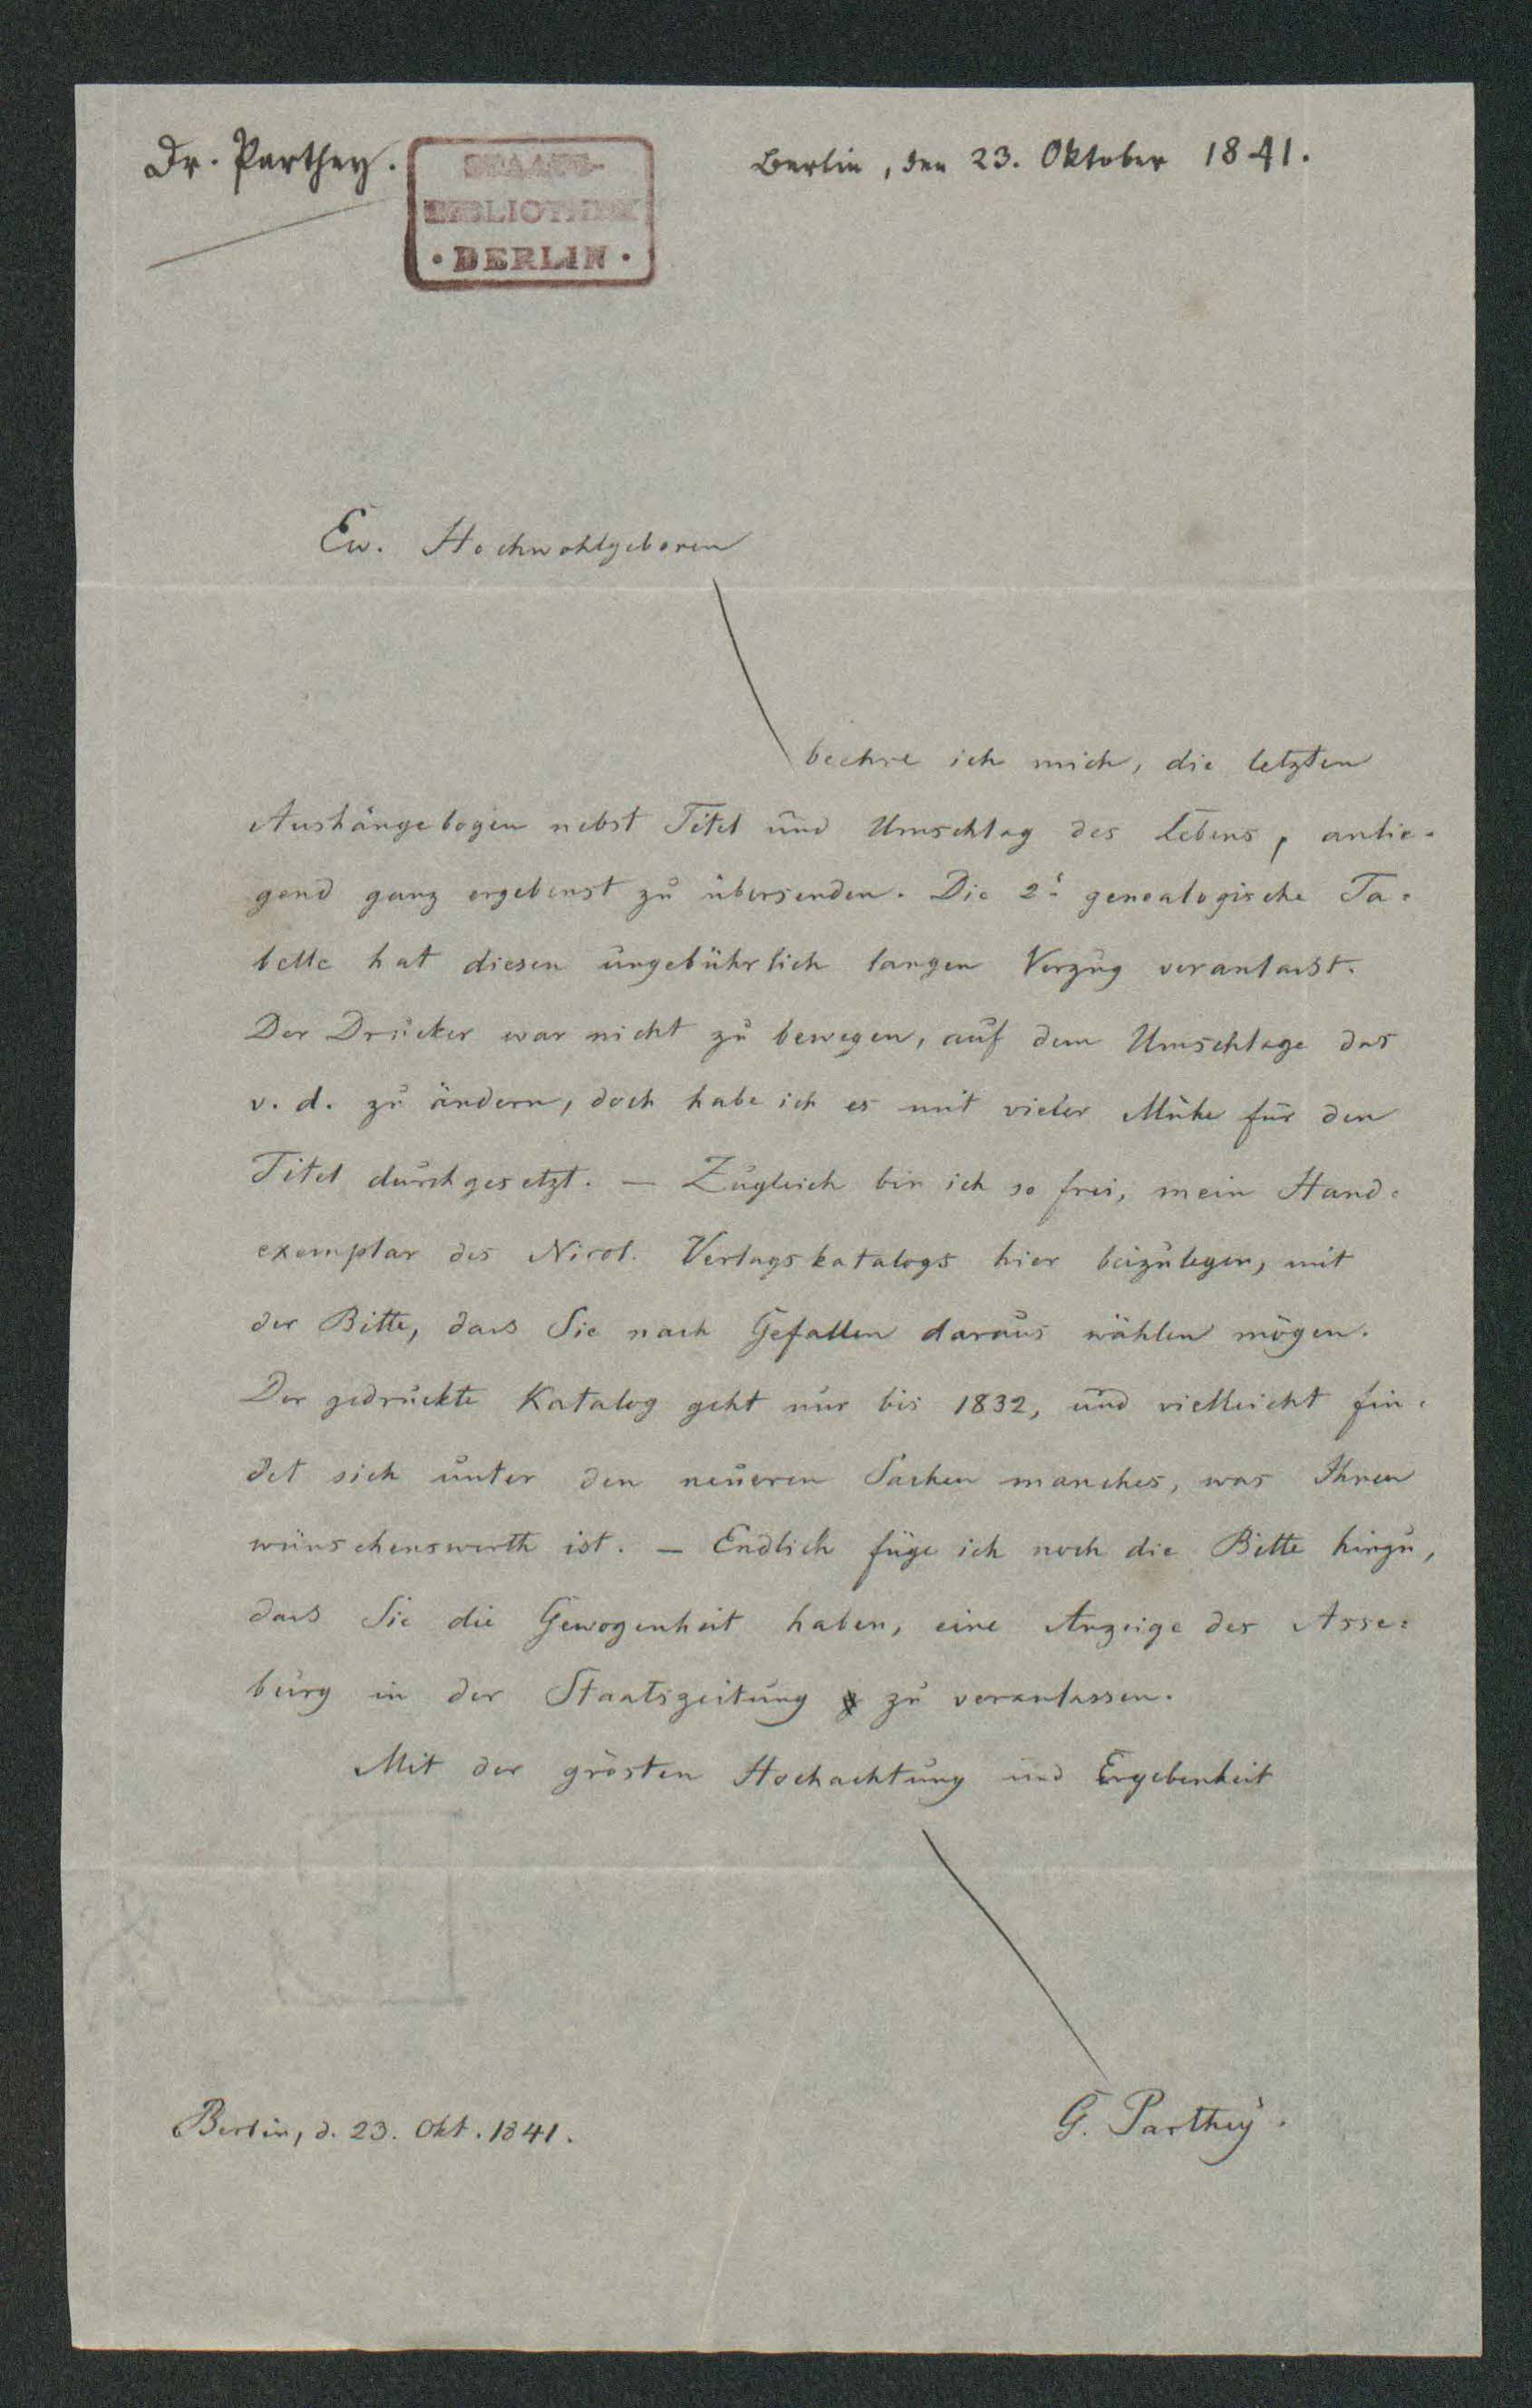 Dr. Parthey.
STAATS-
BIBLIOTHEK
· BERLIN ·
Berlin, den 23. Oktober 1841.
Ew. Hochwohlgeboren
beehre ich mich, die letzten
Aushängebogen nebst Titel und Umschlag des Lebens, anlie-
gend ganz ergebenst zu übersenden. Die 2. genealogische Ta-
belle hat diesen ungebührlich langen Verzug veranlasst.
Der Drucker war nicht zu bewegen, auf dem Umschlage das
v. d. zu ändern, doch habe ich es mit vieler Mühe für den
Titel durchgesetzt. — Zugleich bin ich so frei, mein Hand-
exemplar des Nicol. Verlagskatalogs hier beizulegen, mit
der Bitte, dass Sie nach Gefallen daraus wählen mögen.
Der gedruckte Katalog geht nur bis 1832, und vielleicht fin-
det sich unter den neueren Sachen manches, was Ihnen
wünschenswerth ist. — Endlich füge ich noch die Bitte hinzu,
dass Sie die Gewogenheit haben, eine Anzeige des Asse-
burg in der Staatszeitung zu veranlassen.
Mit der grösten Hochachtung und Ergebenheit
G. Parthey.
Berlin, d. 23. Okt. 1841.